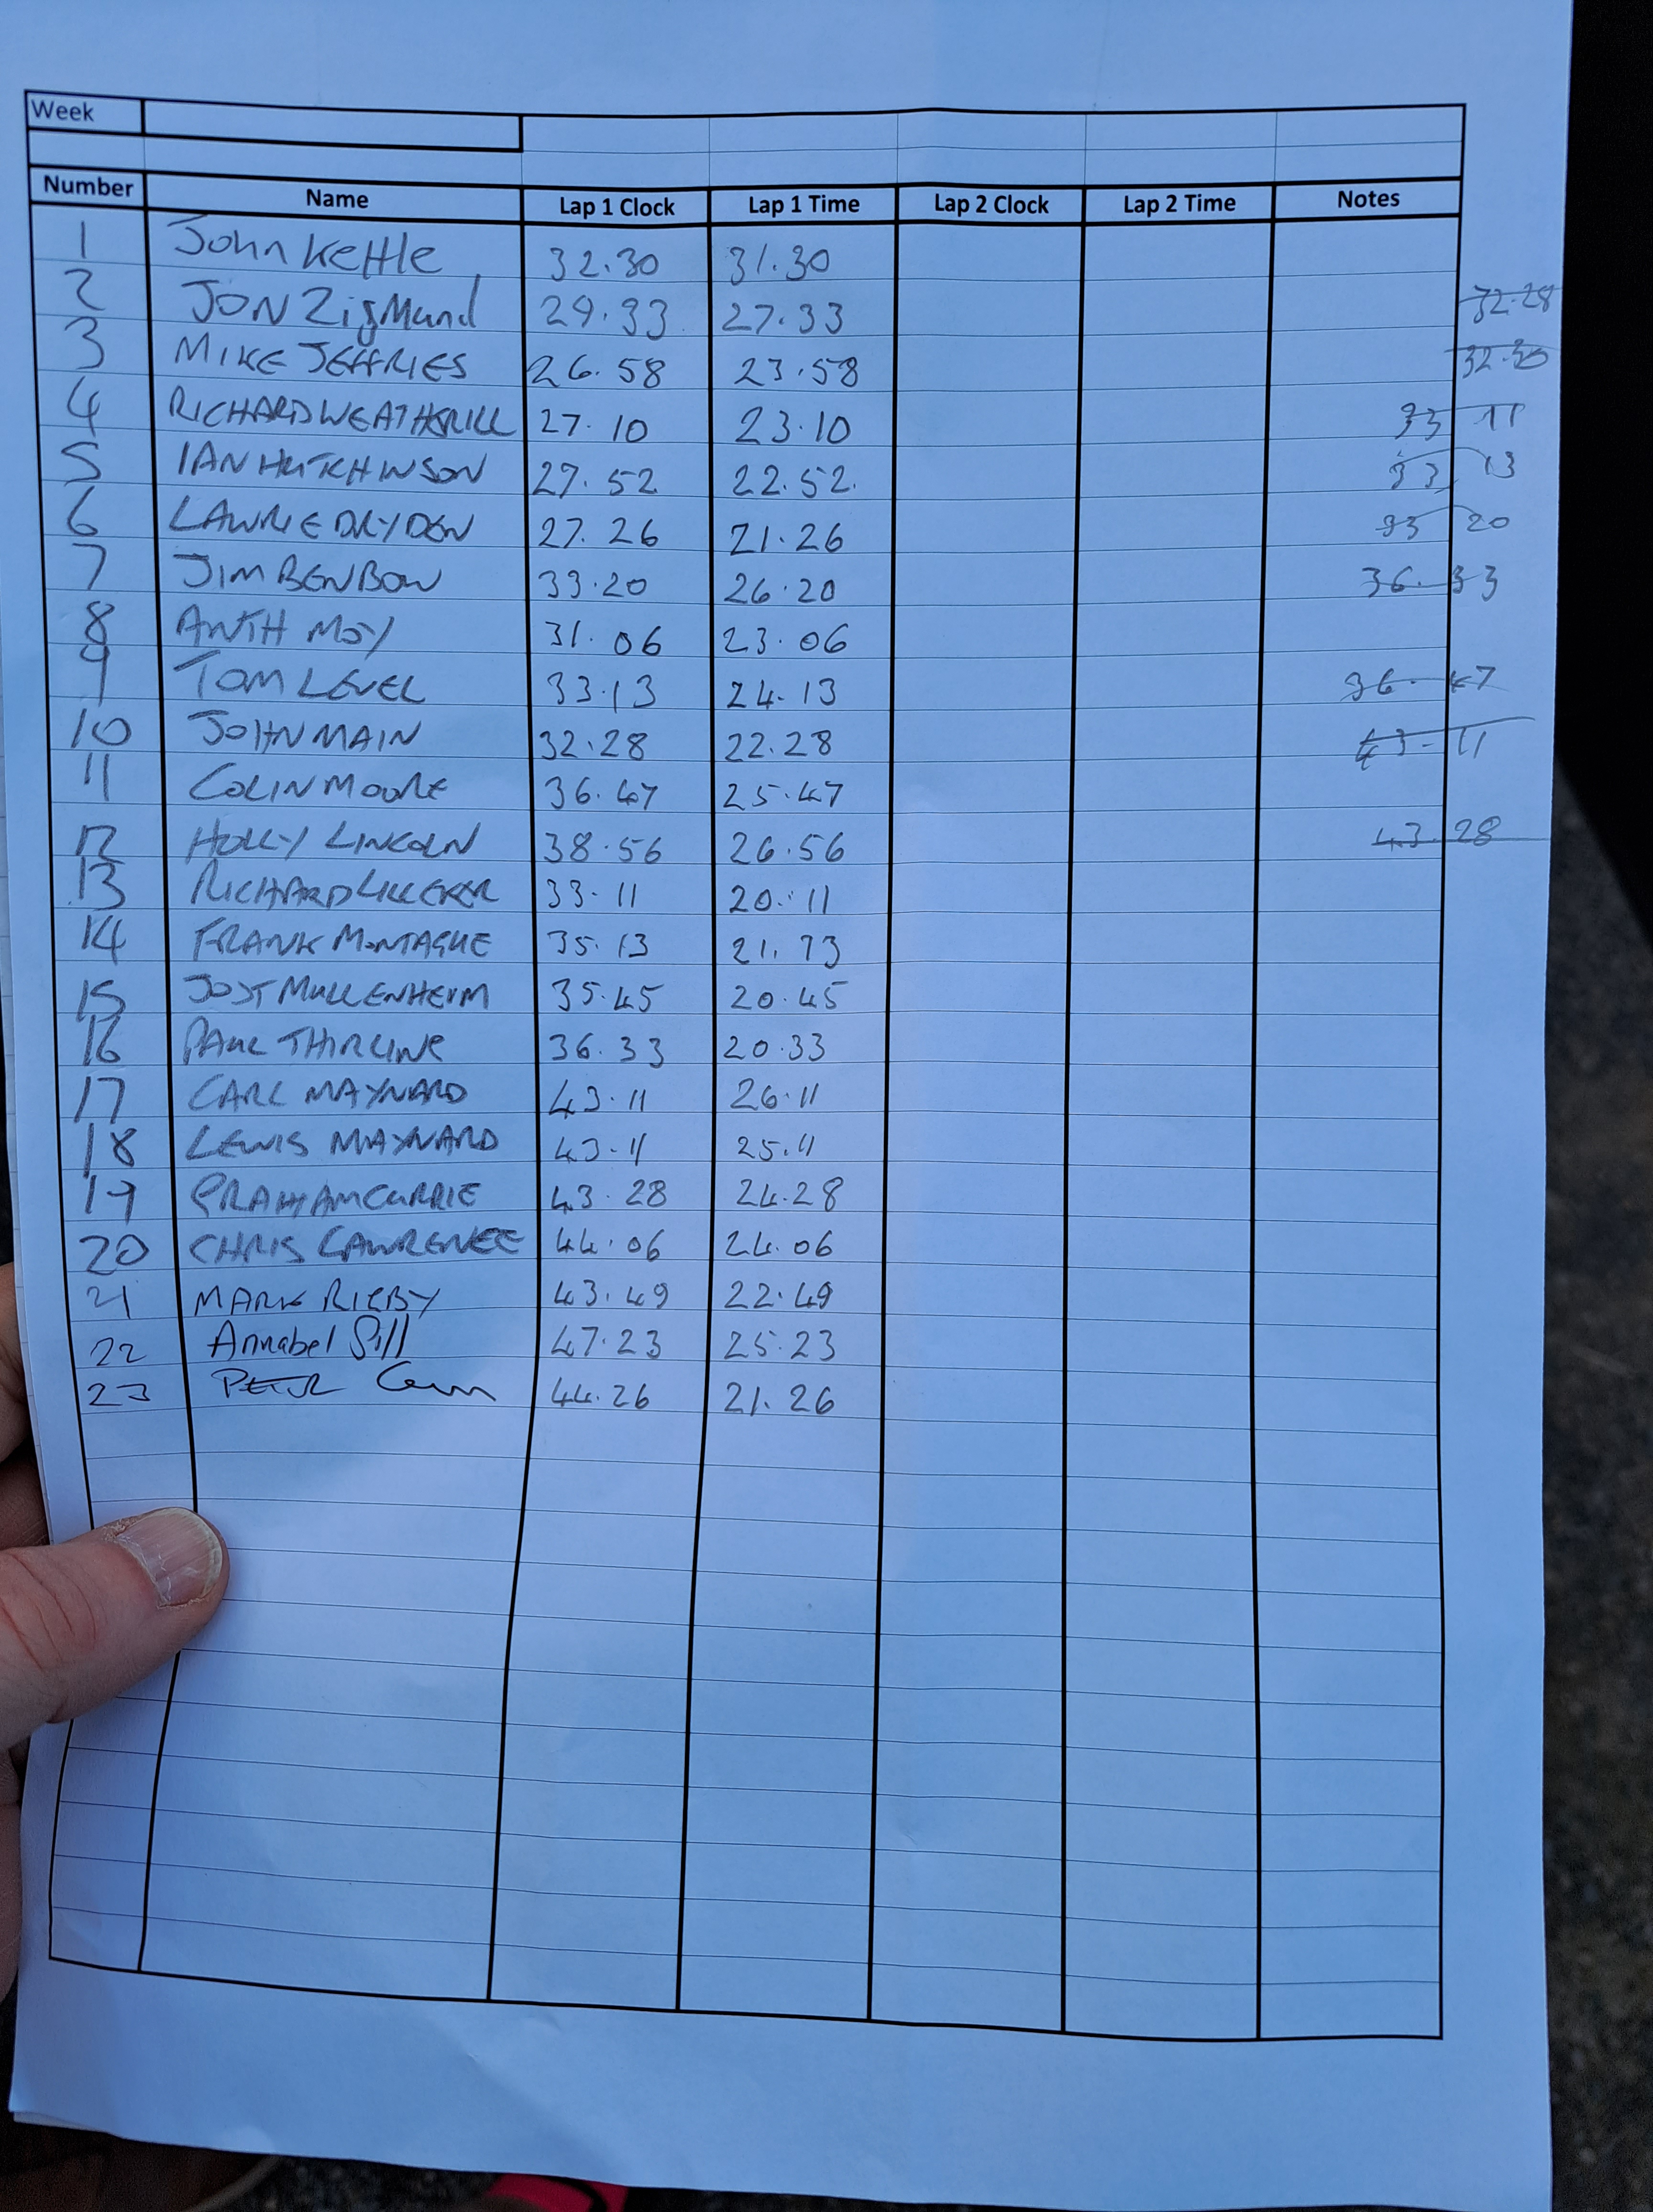 Week
Number Name Lap 1 Clock Lap 1 Time Lap 2 Clock Lap 2 Time Notes
1 John Kettle 32.30 31.30
2 JON ZigMund 29.33 27.33 32.28
3 MIKE JEFFRIES 26.58 23.58 32.30
4 RICHARD WEATHERILL 27.10 23.10 33 11
5 IAN HUTCHINSON 27.52 22.52. 33 13
6 LAWRIE DRYDEN 27.26 21.26 33 20
7 JIM BENBOW 33.20 26.20 36.33
8 ANTH MOY 31.06 23.06
9 TOM LEVEL 33.13 24.13 36.47
10 JOHN MAIN 32.28 22.28 43-11
11 COLIN MOORE 36.47 25.47
12 HOLLY LINCOLN 38.56 26.56 43.28
13 RICHARD LILLEKER 33.11 20.11
14 FRANK MONTAGUE 35.13 21.13
15 JOST MULLENHEIM 35.45 20.45
16 PAUL THIRLINE 36.33 20.33
17 CARL MAYNARD 43.11 26.11
18 LEWIS MAYNARD 43.11 25.11
19 GRAHAM CURRIE 43.28 24.28
20 CHRIS LAWRENCE 44.06 24.06
21 MARK RIGBY 43.49 22.49
22 Annabel Gill 47.23 25.23
23 PETER 44.26 21.26